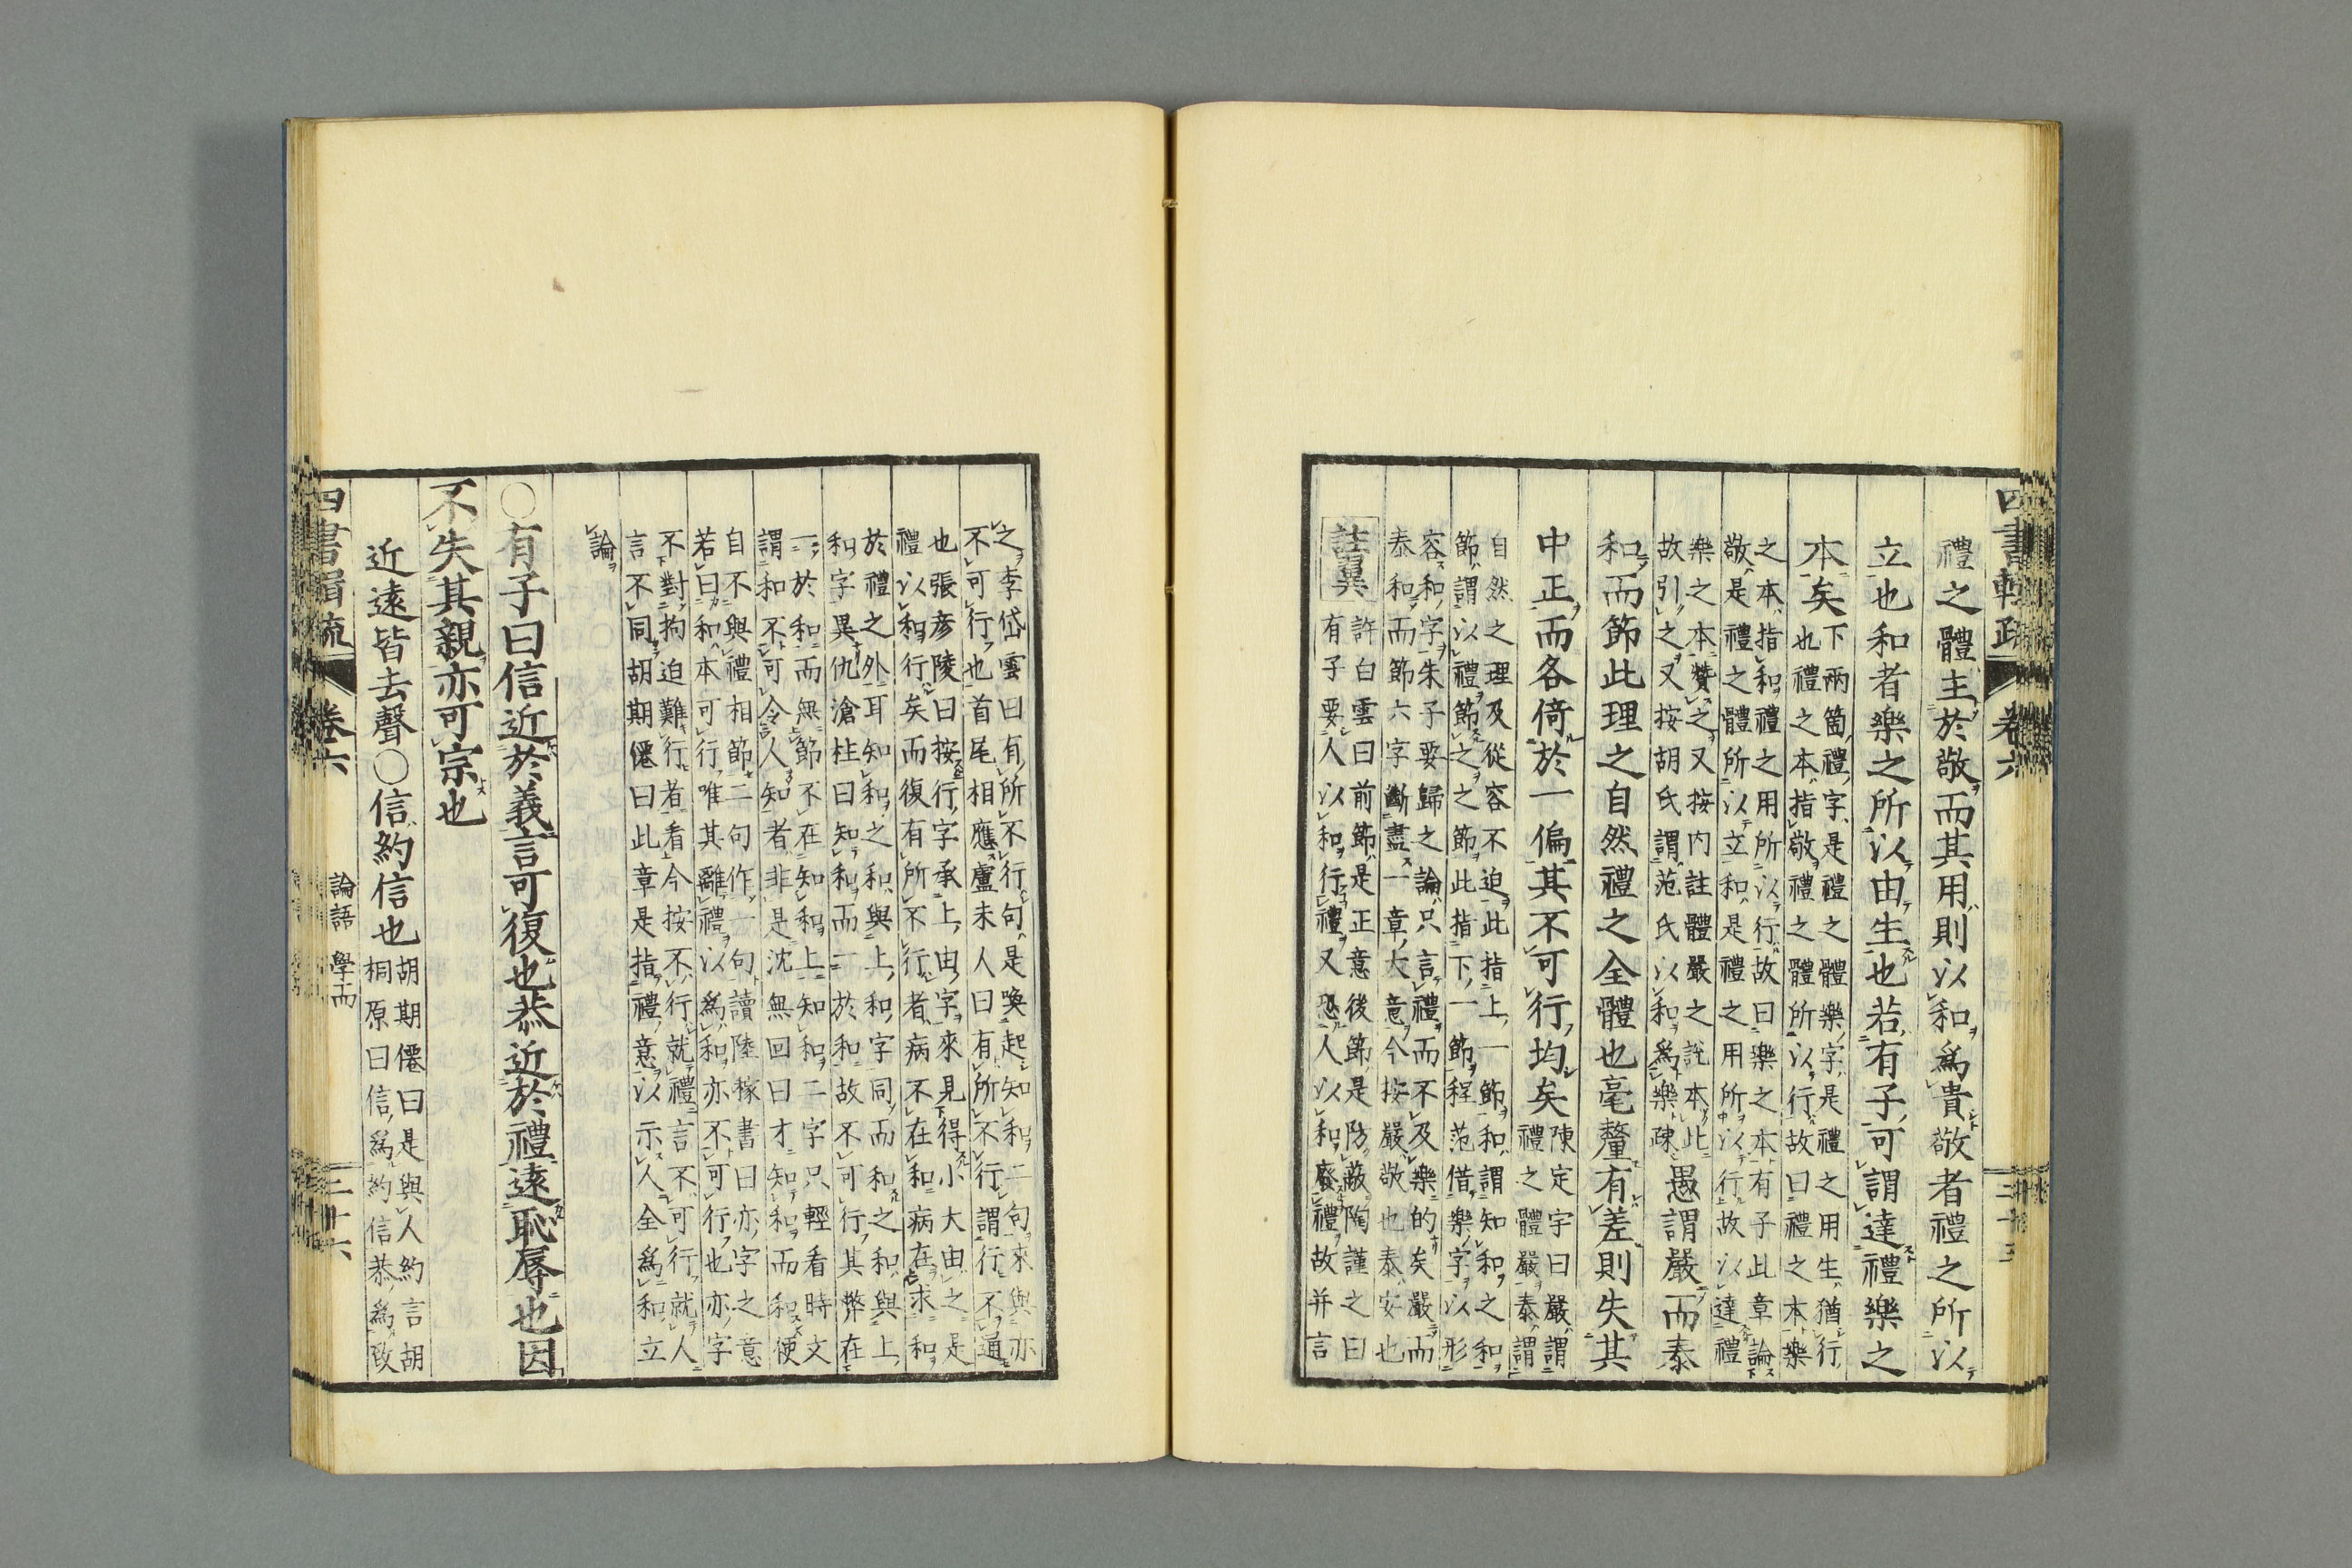 禮之體主於敬而其用則以和爲貴敬者禮之所以
立也和者樂之所以由生也若有子可謂達禮樂之
本矣
下兩箇禮字是禮之體樂字是禮之用生猶行
也禮之本指敬禮之體所以行故曰禮之本樂
之本指和禮之用所以行故曰樂之本有子此章論
敬是禮之體所以立和是禮之用所以行故以達禮
樂之本贊之又按内註體嚴之說本此
故引之又按胡氏謂范氏以和爲樂疎
愚謂嚴而泰
和而節此理之自然禮之全體也毫釐有差則失其
中正而各倚於一偏其不可行均矣
陳定宇曰嚴謂
禮之體嚴泰謂
自然之理及從容不迫此指上一節和謂知和之和
節謂以禮節之之節此指下一節程范借樂字以形
容和字朱子要歸之論只言禮而不及樂的矣嚴而
泰和而節六字斷盡一章大意今按嚴敬也泰安也
註翼
許白雲曰前節是正意後節是防蔽陶謹之曰
有子要人以和行禮又恐人以和廢禮故并言
卷六
之李岱雲曰有所不行句是喚起知和二句來與亦
不可行也首尾相應盧未人曰有所不行謂行不通
也張彦陵曰按行字承上由字來見得小大由之是
禮以和行矣而復有所不行者病不在和病在求和
於禮之外耳知和之和與上和字同而和之和與上
和字異仇滄柱曰知和而一於和故不可行其弊在
一於和而無節不在知和上知和二字只輕看時文
謂和不可令人知者非是沈無回曰才知和而和便
自不與禮相節二句作一句讀陸稼書曰亦字之意
若曰和本可行唯其離禮以爲和亦不可行也亦字
不對拘迫難行者看今按不行就禮言不可行就人
言不同胡期僊曰此章是指禮意以示人全爲和立
論
○有子曰信近於義言可復也恭近於禮遠恥辱也因
不失其親亦可宗也
近遠皆去聲○信約信也
胡期僊曰是與人約言胡
桐原曰信爲約信恭爲致
卷六
論語 學而
二十六